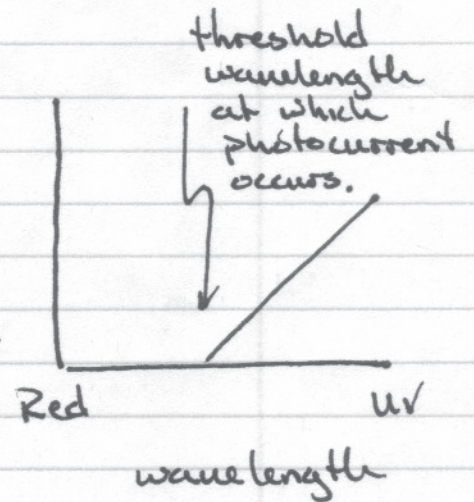 threshold
wavelength
at which
photocurrent
occurs.
Red
UV
wavelength